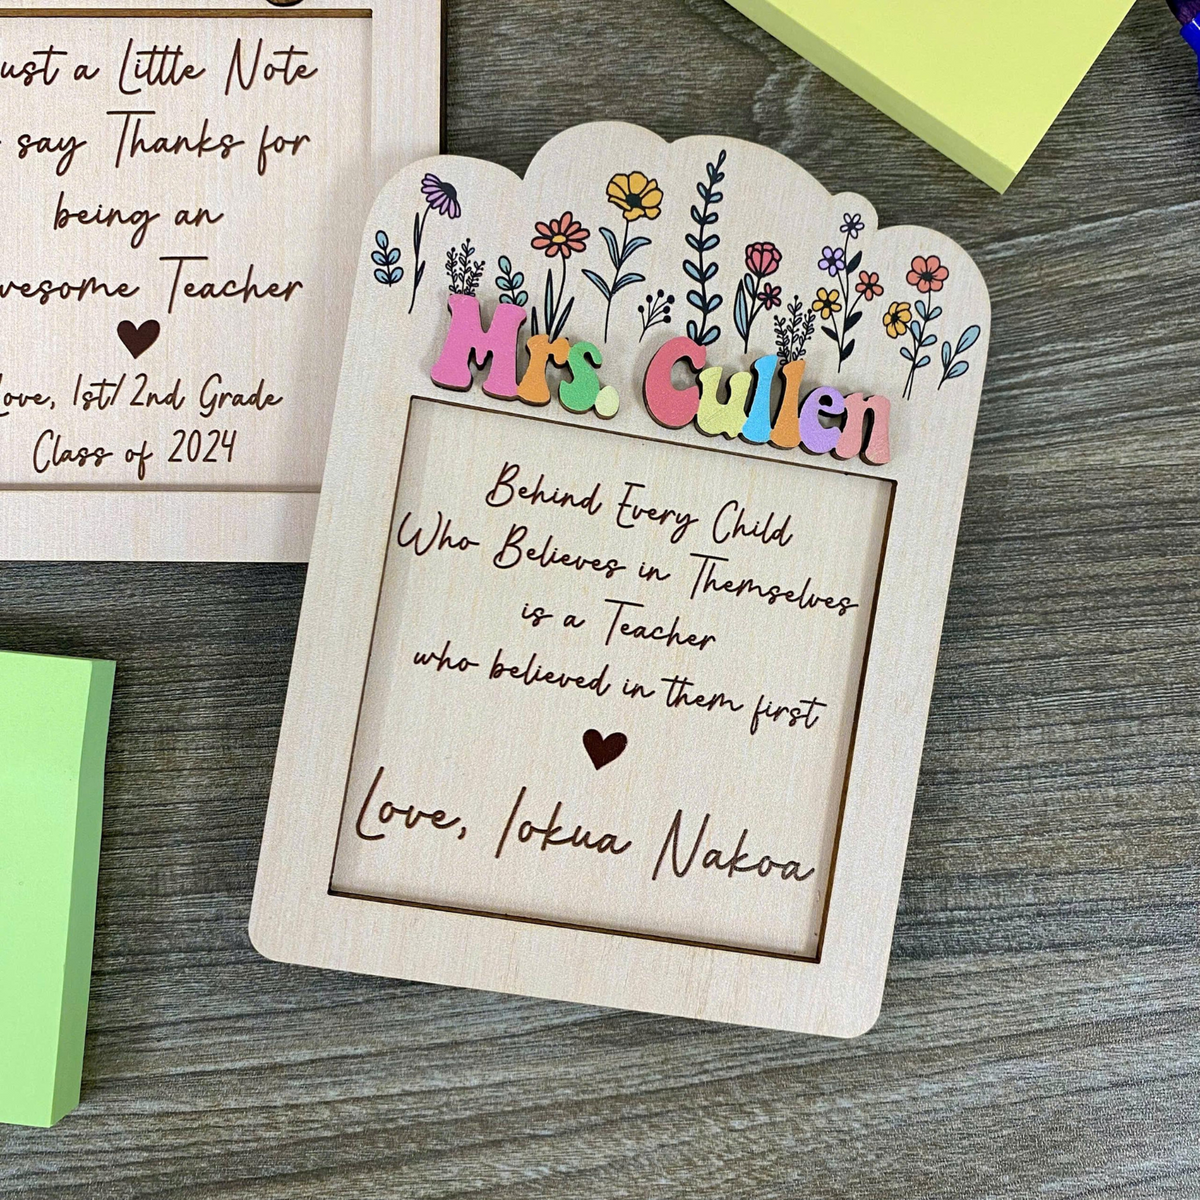 a Little Note
say Thanks for
being an
Teacher
1st/2nd Grade
Class of 2024
Mrs. Cullen
Behind Every Child
Who Believes in Themselves
is a Teacher
who believed in them first
Love, Iokua Nakoa